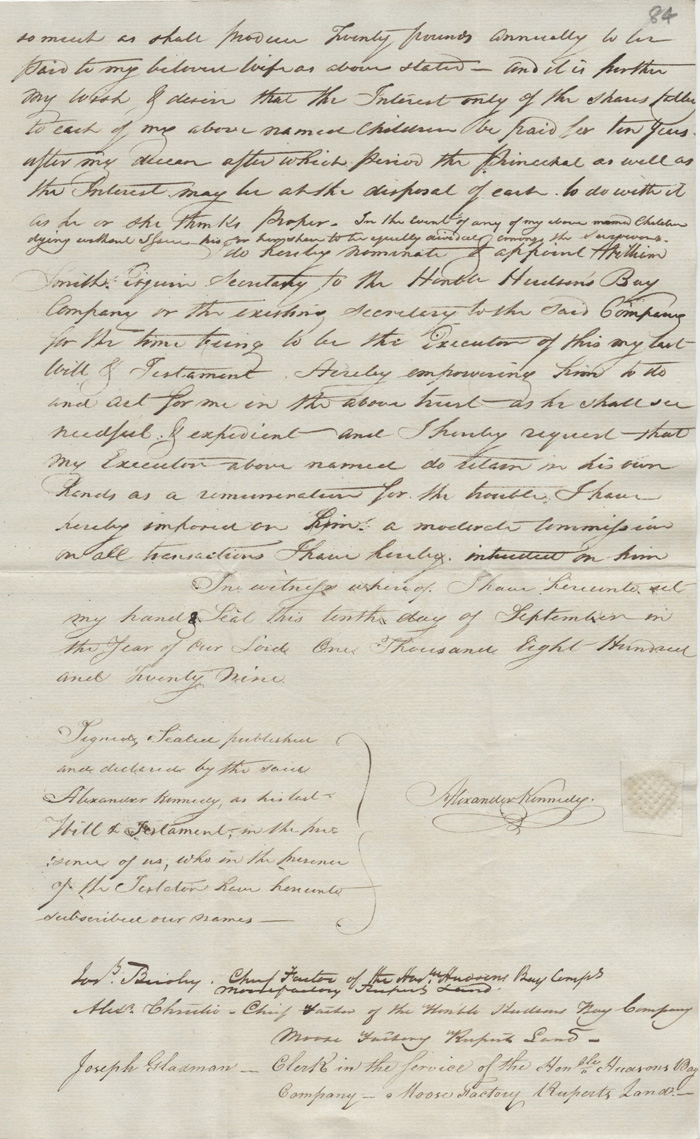 84
so much as shall produce Twenty pounds annually to be
paid to my beloved Wife as above stated – and it is further
my Wish & desire that the Interest only of the Shares
to each of my above named Children be paid for ten Years
after my decease after which period the Principal as well as
the Interest may be at the disposal of each to do with it
as he or she thinks Proper. In the event of any of my above named Children
dying without Issue his or her share to be equally divided among the Survivors.
do hereby nominate & appoint William
Smith Esquire Secretary to the Honble Hudson's Bay
Company or the existing Secretary to the said Company
for the time being to be the Executor of this my last
Will & Testament Hereby empowering him to do
and act for me in the above trust as he shall see
needful & expedient and I hereby request that
my Executor above named do retain in his own
hands as a remuneration for the trouble I have
hereby imposed on him a moderate Commission
on all transactions I have hereby intrusted on him
In witness whereof I have hereunto set
my hand & Seal this tenth day of September in
the Year of Our Lord One Thousand Eight Hundred
and Twenty Nine
Signed, Sealed published
and declared by the said
Alexander Kennedy, as his last
Will & Testament, in the pre
sence of us, who in the presence
of the Testator have hereunto
subscribed our names —
Alexander Kennedy.
Chief Factor of the Honble Hudsons Bay Compy
Moosefactory Ruperts Land.
Alexr Christie – Chief Factor of the Honble Hudsons Bay Company
Moose Factory Ruperts Land –
Joseph Gladman — Clerk in the Service of the Honble Hudsons Bay
Company – Moose Factory Ruperts Land. –